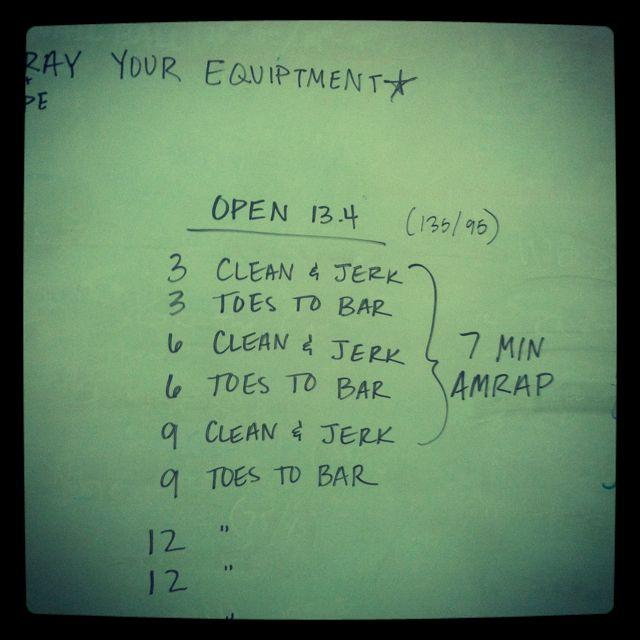 RAY YOUR EQUIPTMENT★
DE
OPEN 13.4 (135/95)
3 CLEAN & JERK
3 TOES TO BAR
6 CLEAN & JERK
6 TOES TO BAR
9 CLEAN & JERK
9 TOES TO BAR
12 "
12 "
"
7 MIN
AMRAP